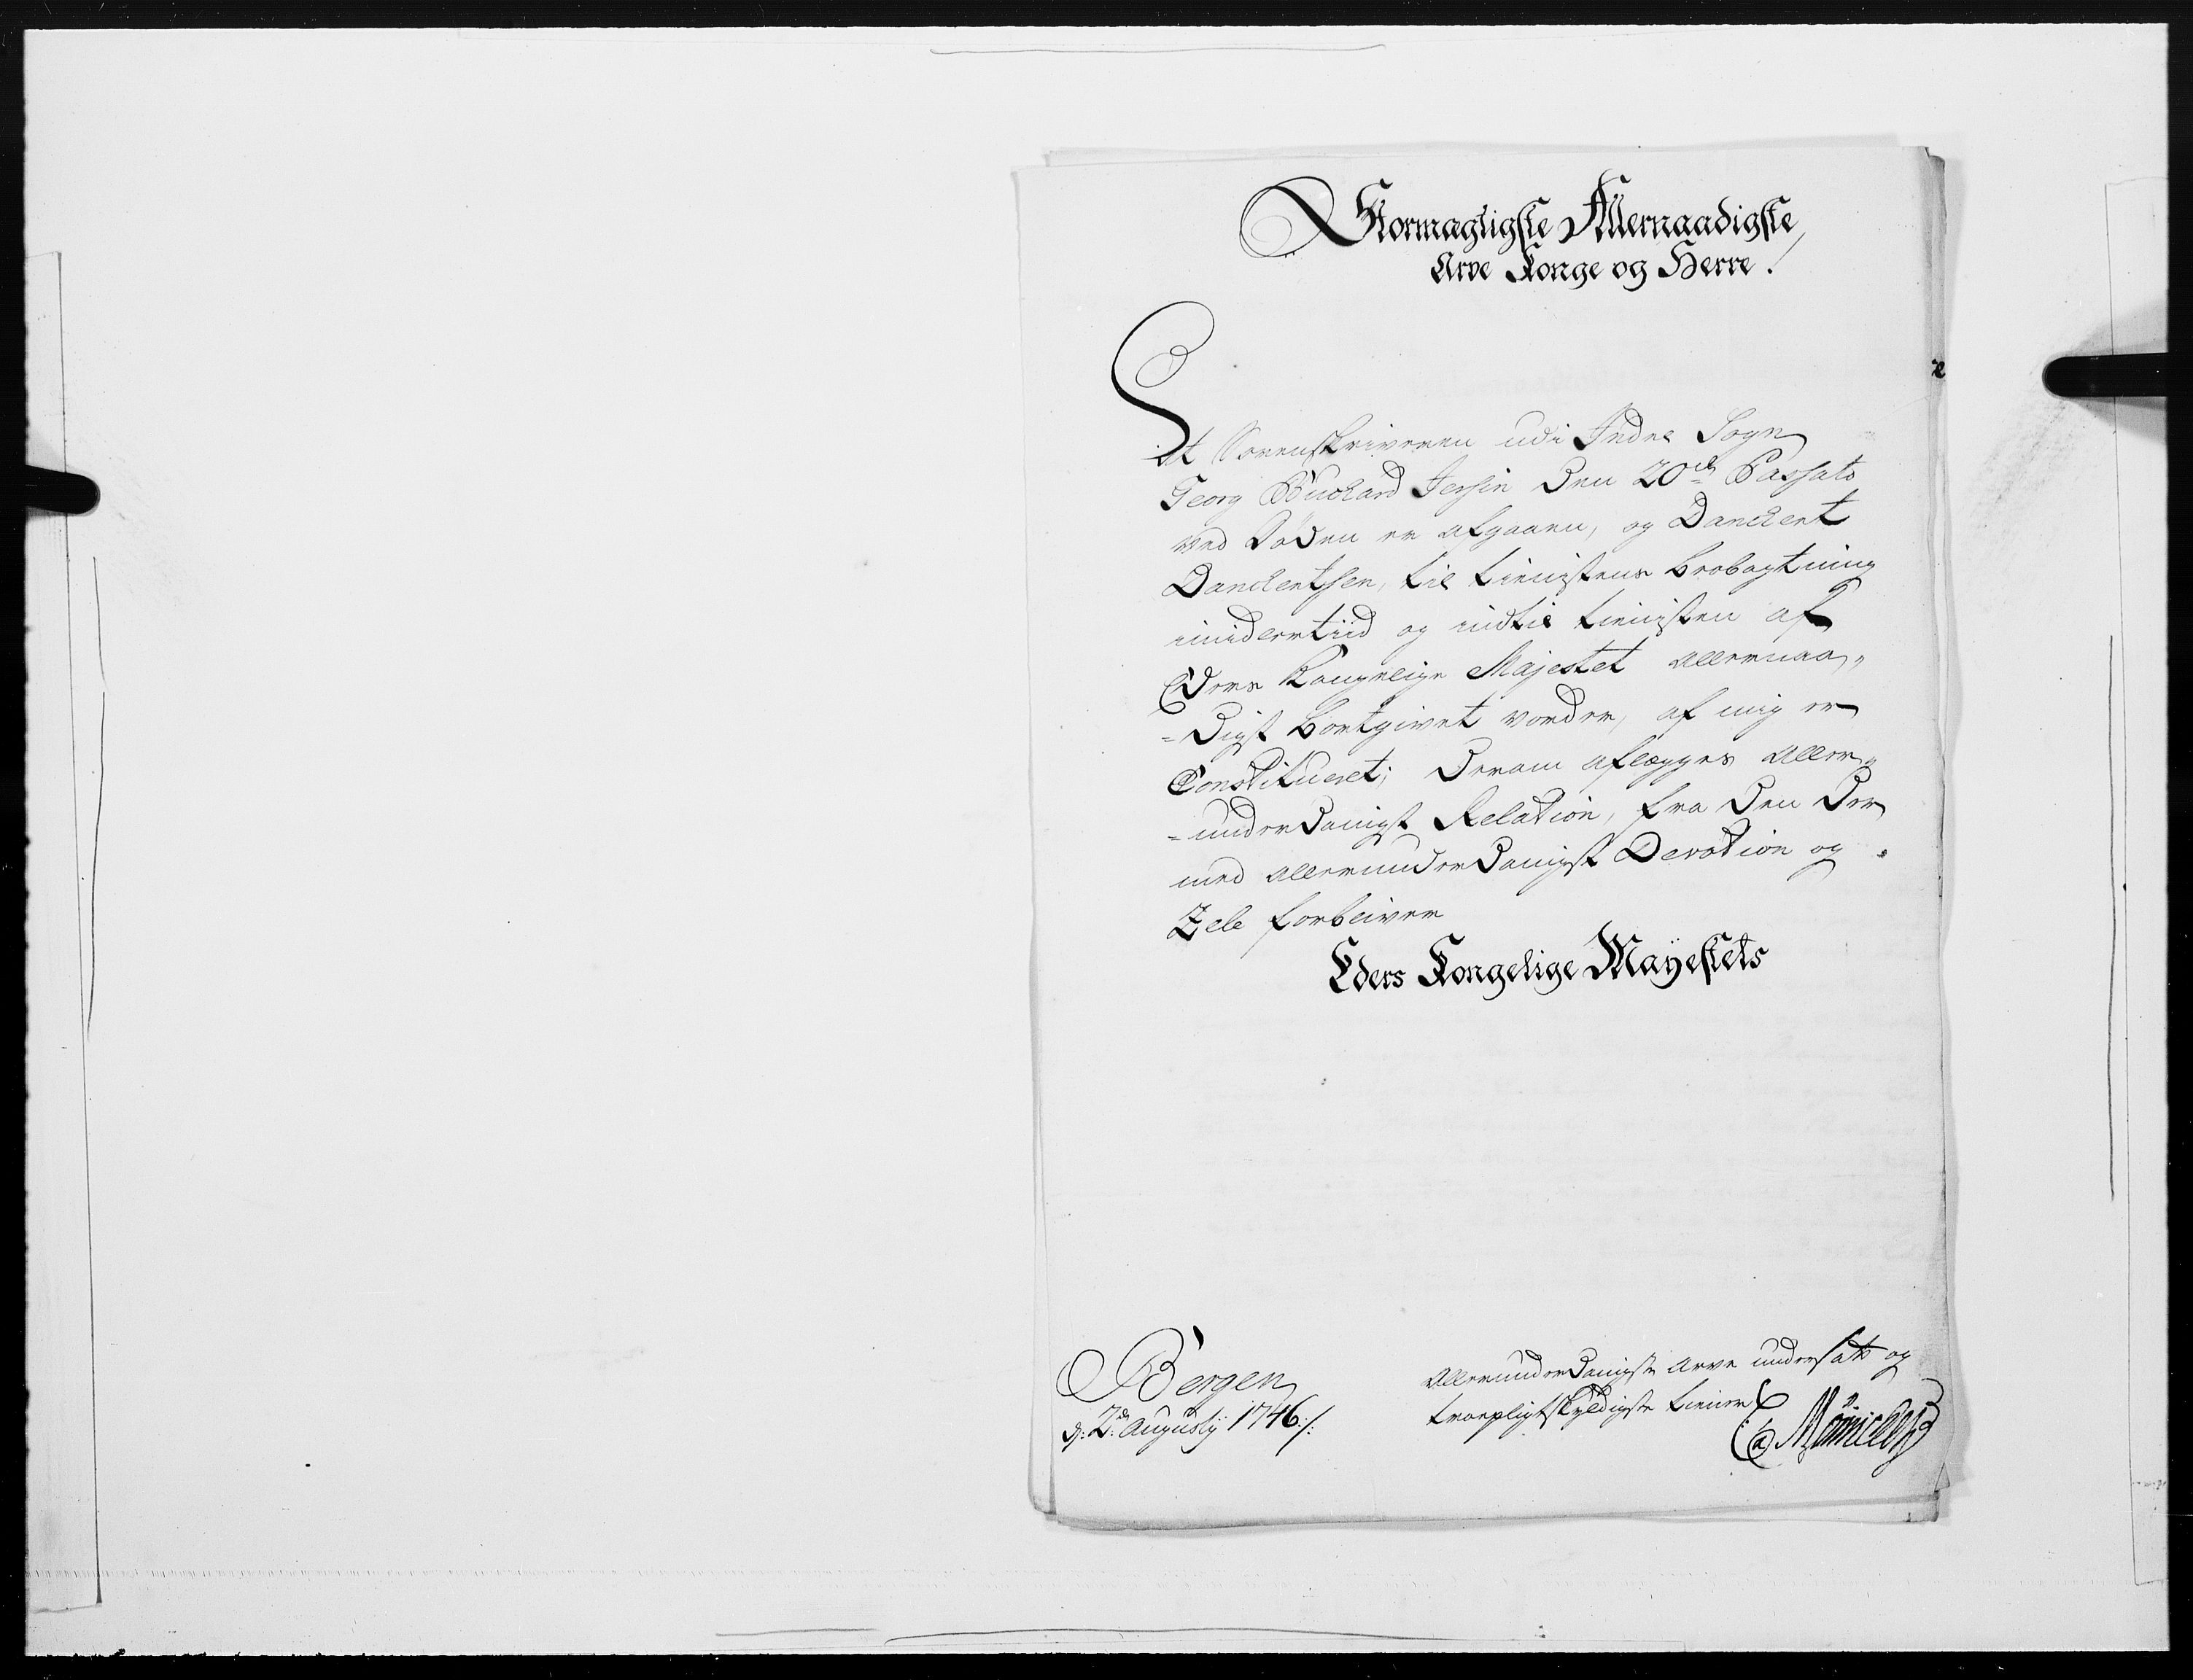 Stormægtigste Allernaadigste
Arve Konge og Herre!
At Sorenskriveren udi Indre Sogn
Georg Buchard Jersin den 20de Passato
ved Døden er afgaaen, og Danckert
Danckertsen, til tienistens Beobagtning
imidlertiid og indtil tienisten af
Eders Kongelige Majestet allernaa„
=digst bortgivet vorder, af mig er
Constitueret; Derom aflægges aller„
=underdanigst Relation, fra den der
med allerunderdanigst Devotion og
Zele forbliver
Eders Kongelige Mayestets
Bergen
d: 2de Augusty 1746:/:
allerunderdanigste arve undersatt og
troepligtskyldigste tiener